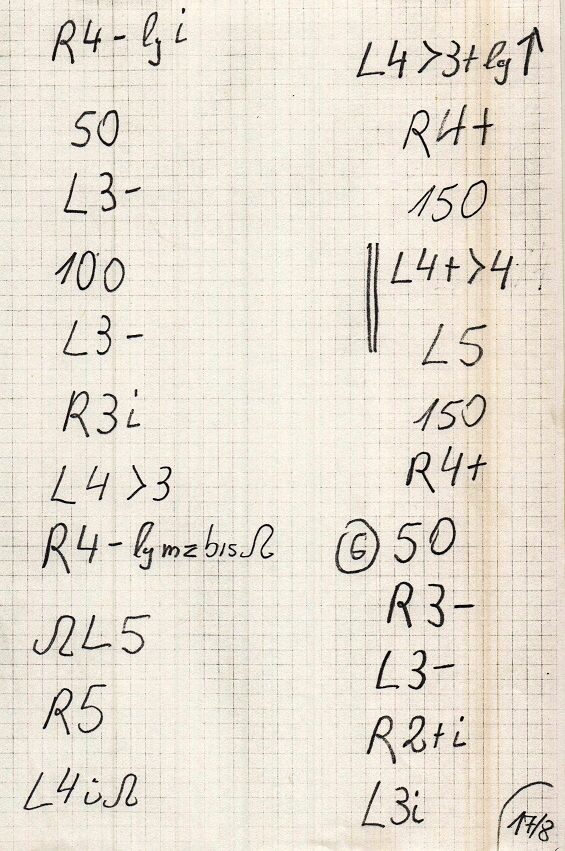 R4- lg i
50
L3-
100
L3-
R3i
L4>3
R4- lg mz bis Ω
ΩL5
R5
L4iΩ
L4>3+lg↑
R4+
150
L4+>4
L5
150
R4+
6 50
R3-
L3-
R2+i
L3i
17/8